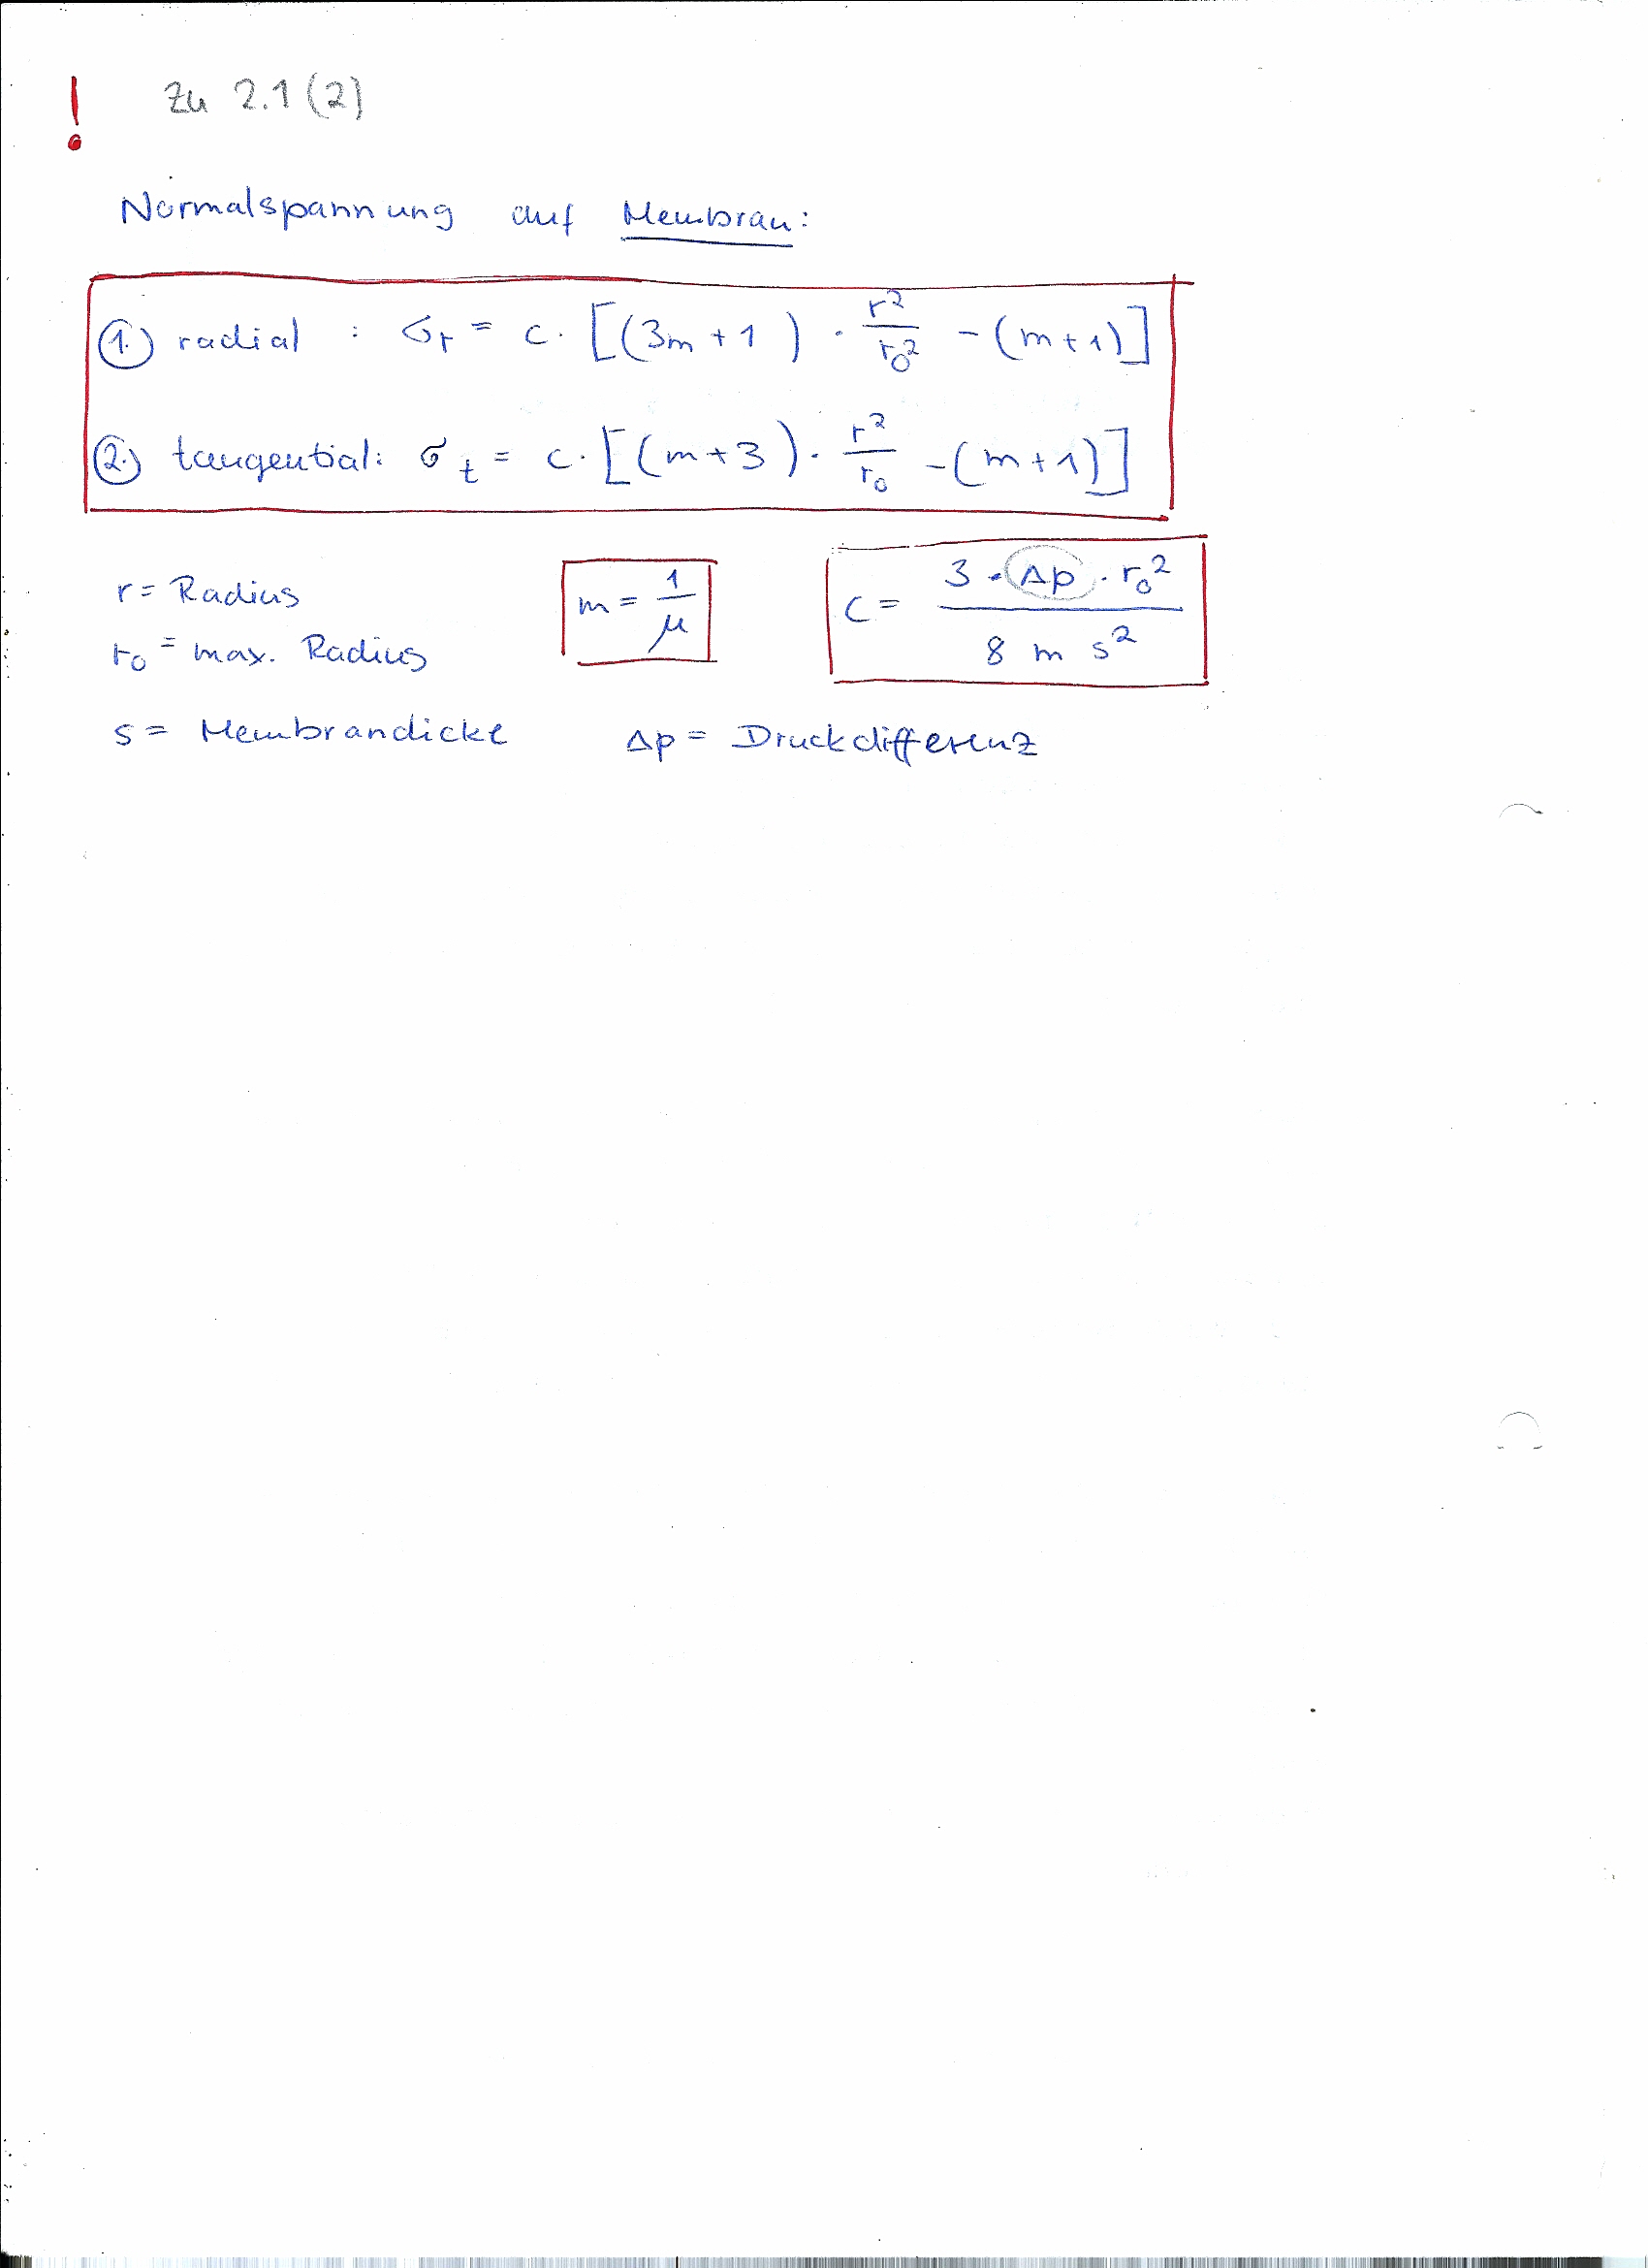 ! Zu 2.1 (2)
Normalspannung auf Membran:
1.) radial : σr = c · [(3m + 1) · r²/r₀² - (m + 1)]
2.) tangential: σt = c · [(m + 3) · r²/r₀ - (m + 1)]
r = Radius
m = 1/μ
c = 3 · Δp · r₀² / 8 m s²
r₀ = max. Radius
s = Membrandicke Δp = Druckdifferenz